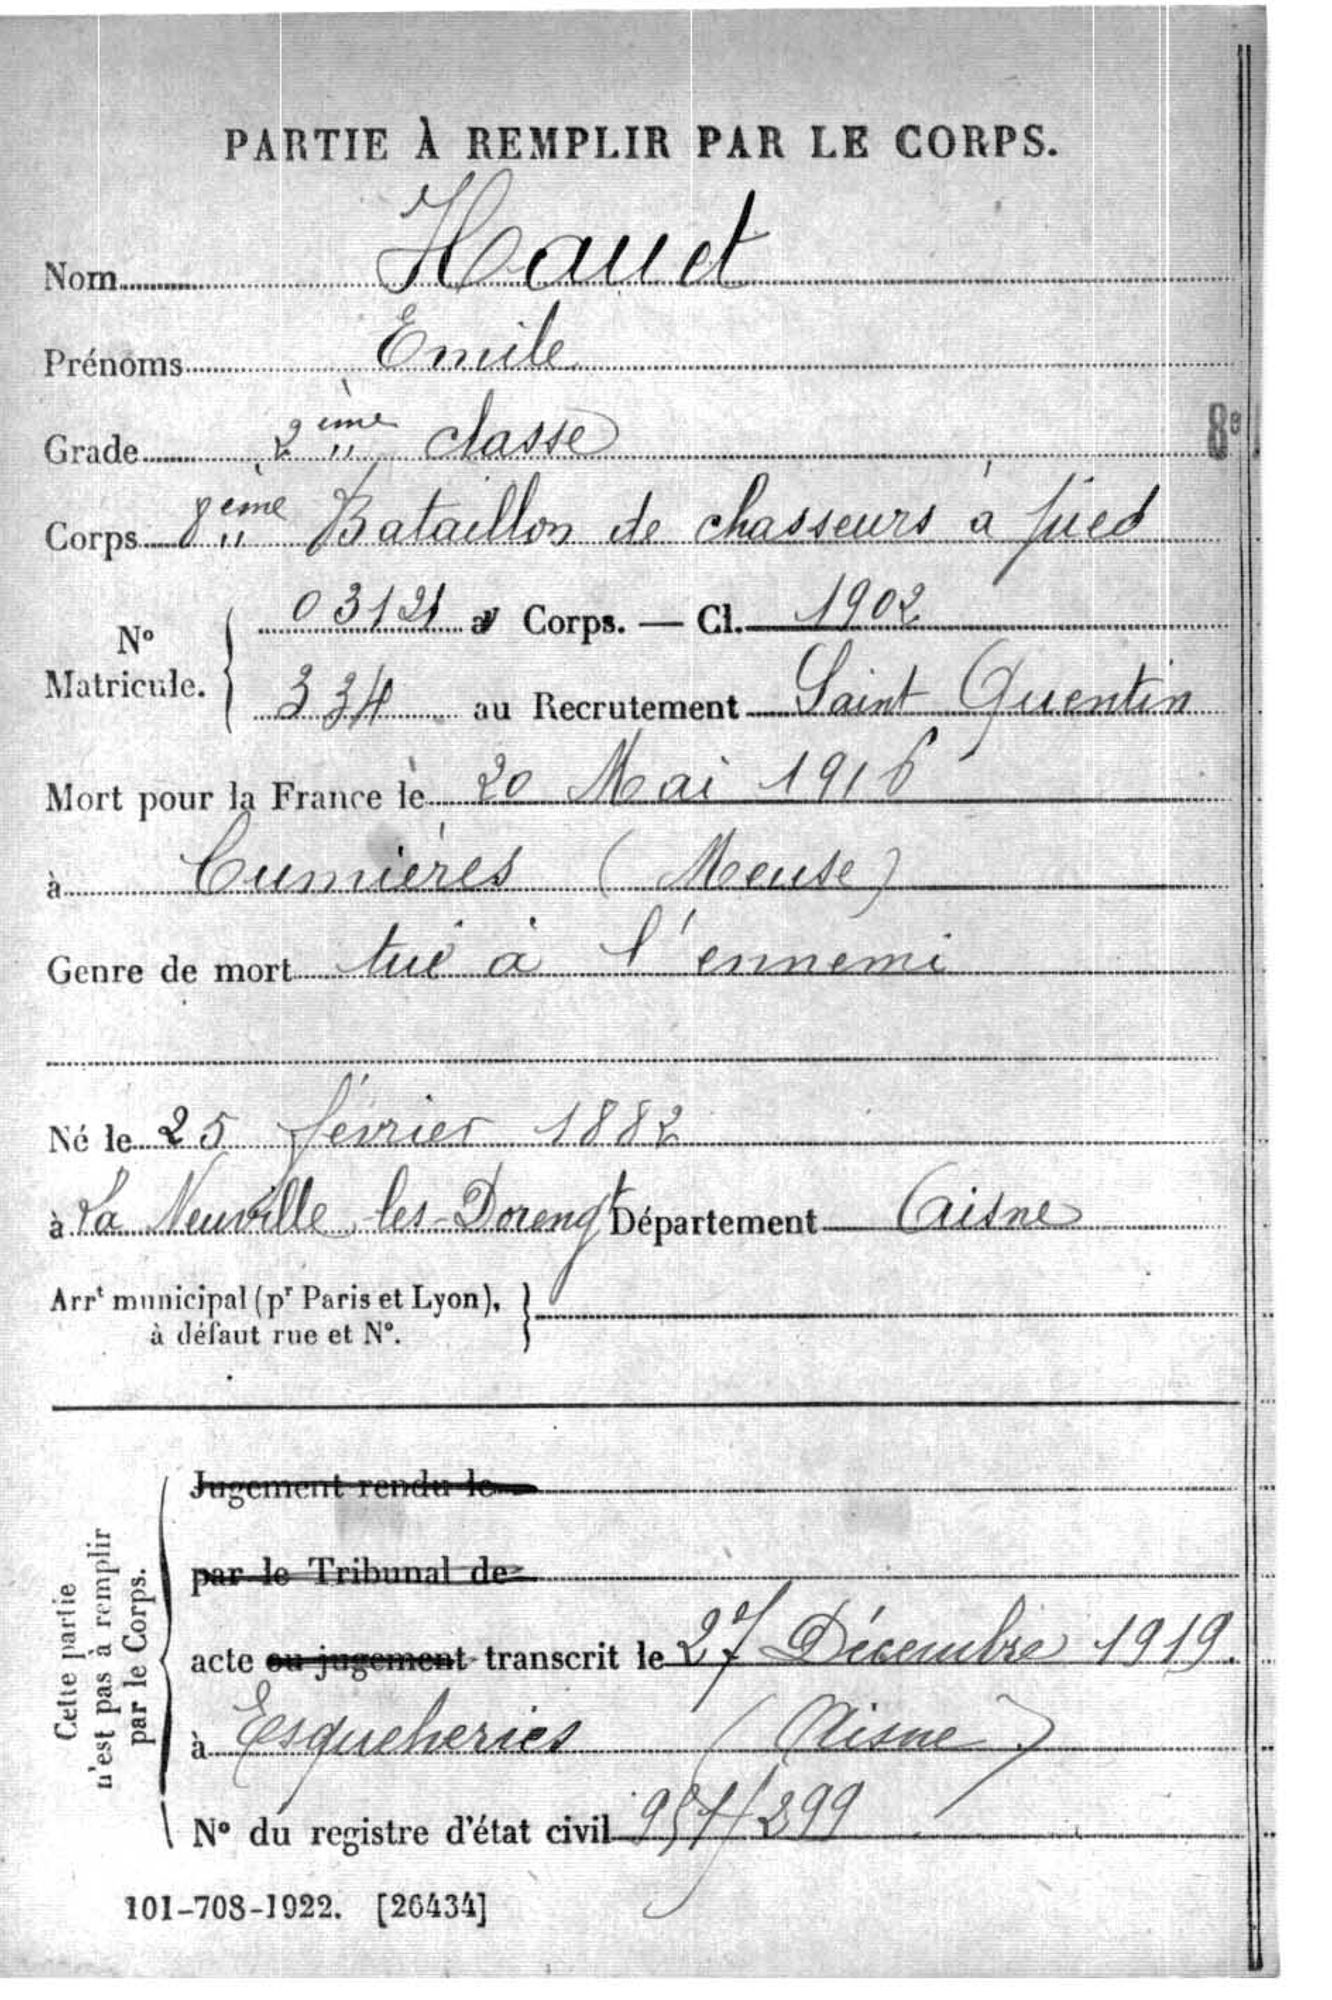 PARTIE À REMPLIR PAR LE CORPS.
Nom Hauet
Prénoms Emile
Grade 2ème classe
8e
Corps 8ème Bataillon de chasseurs à pied
N° Matricule. { 03121 au Corps. — Cl. 1902
334 au Recrutement Saint Quentin
Mort pour la France le 20 Mai 1916
à Cumières (Meuse)
Genre de mort tué à l'ennemi
Né le 25 février 1882
à La Neuville-les-Dorengt Département Aisne
Arrt municipal (pr Paris et Lyon),
à défaut rue et N°.
Cette partie
n'est pas à remplir
par le Corps.
Jugement rendu le
par le Tribunal de
acte ou jugement transcrit le 27 Décembre 1919.
à Esqueheries (Aisne)
N° du registre d'état civil
101-708-1922. [26434]